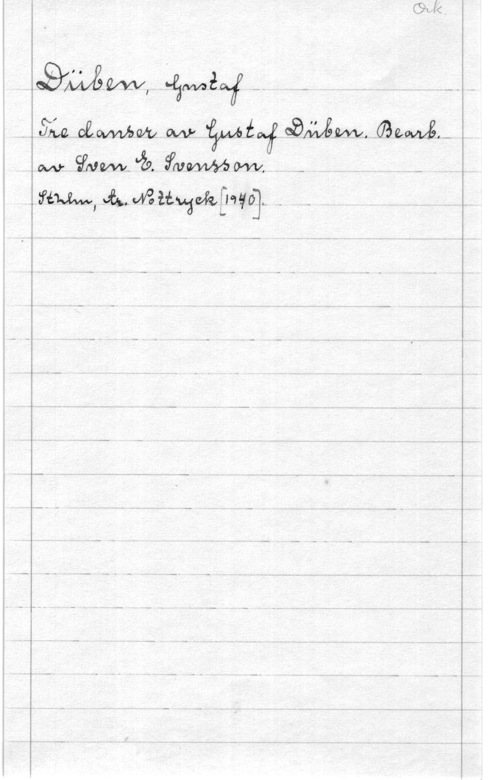 Ork.
Düben, Gustaf
Tre danser av Gustaf Düben. Bearb.
av Sven E. Svensson.
Sthlm, Ar. Nottryck [1940].